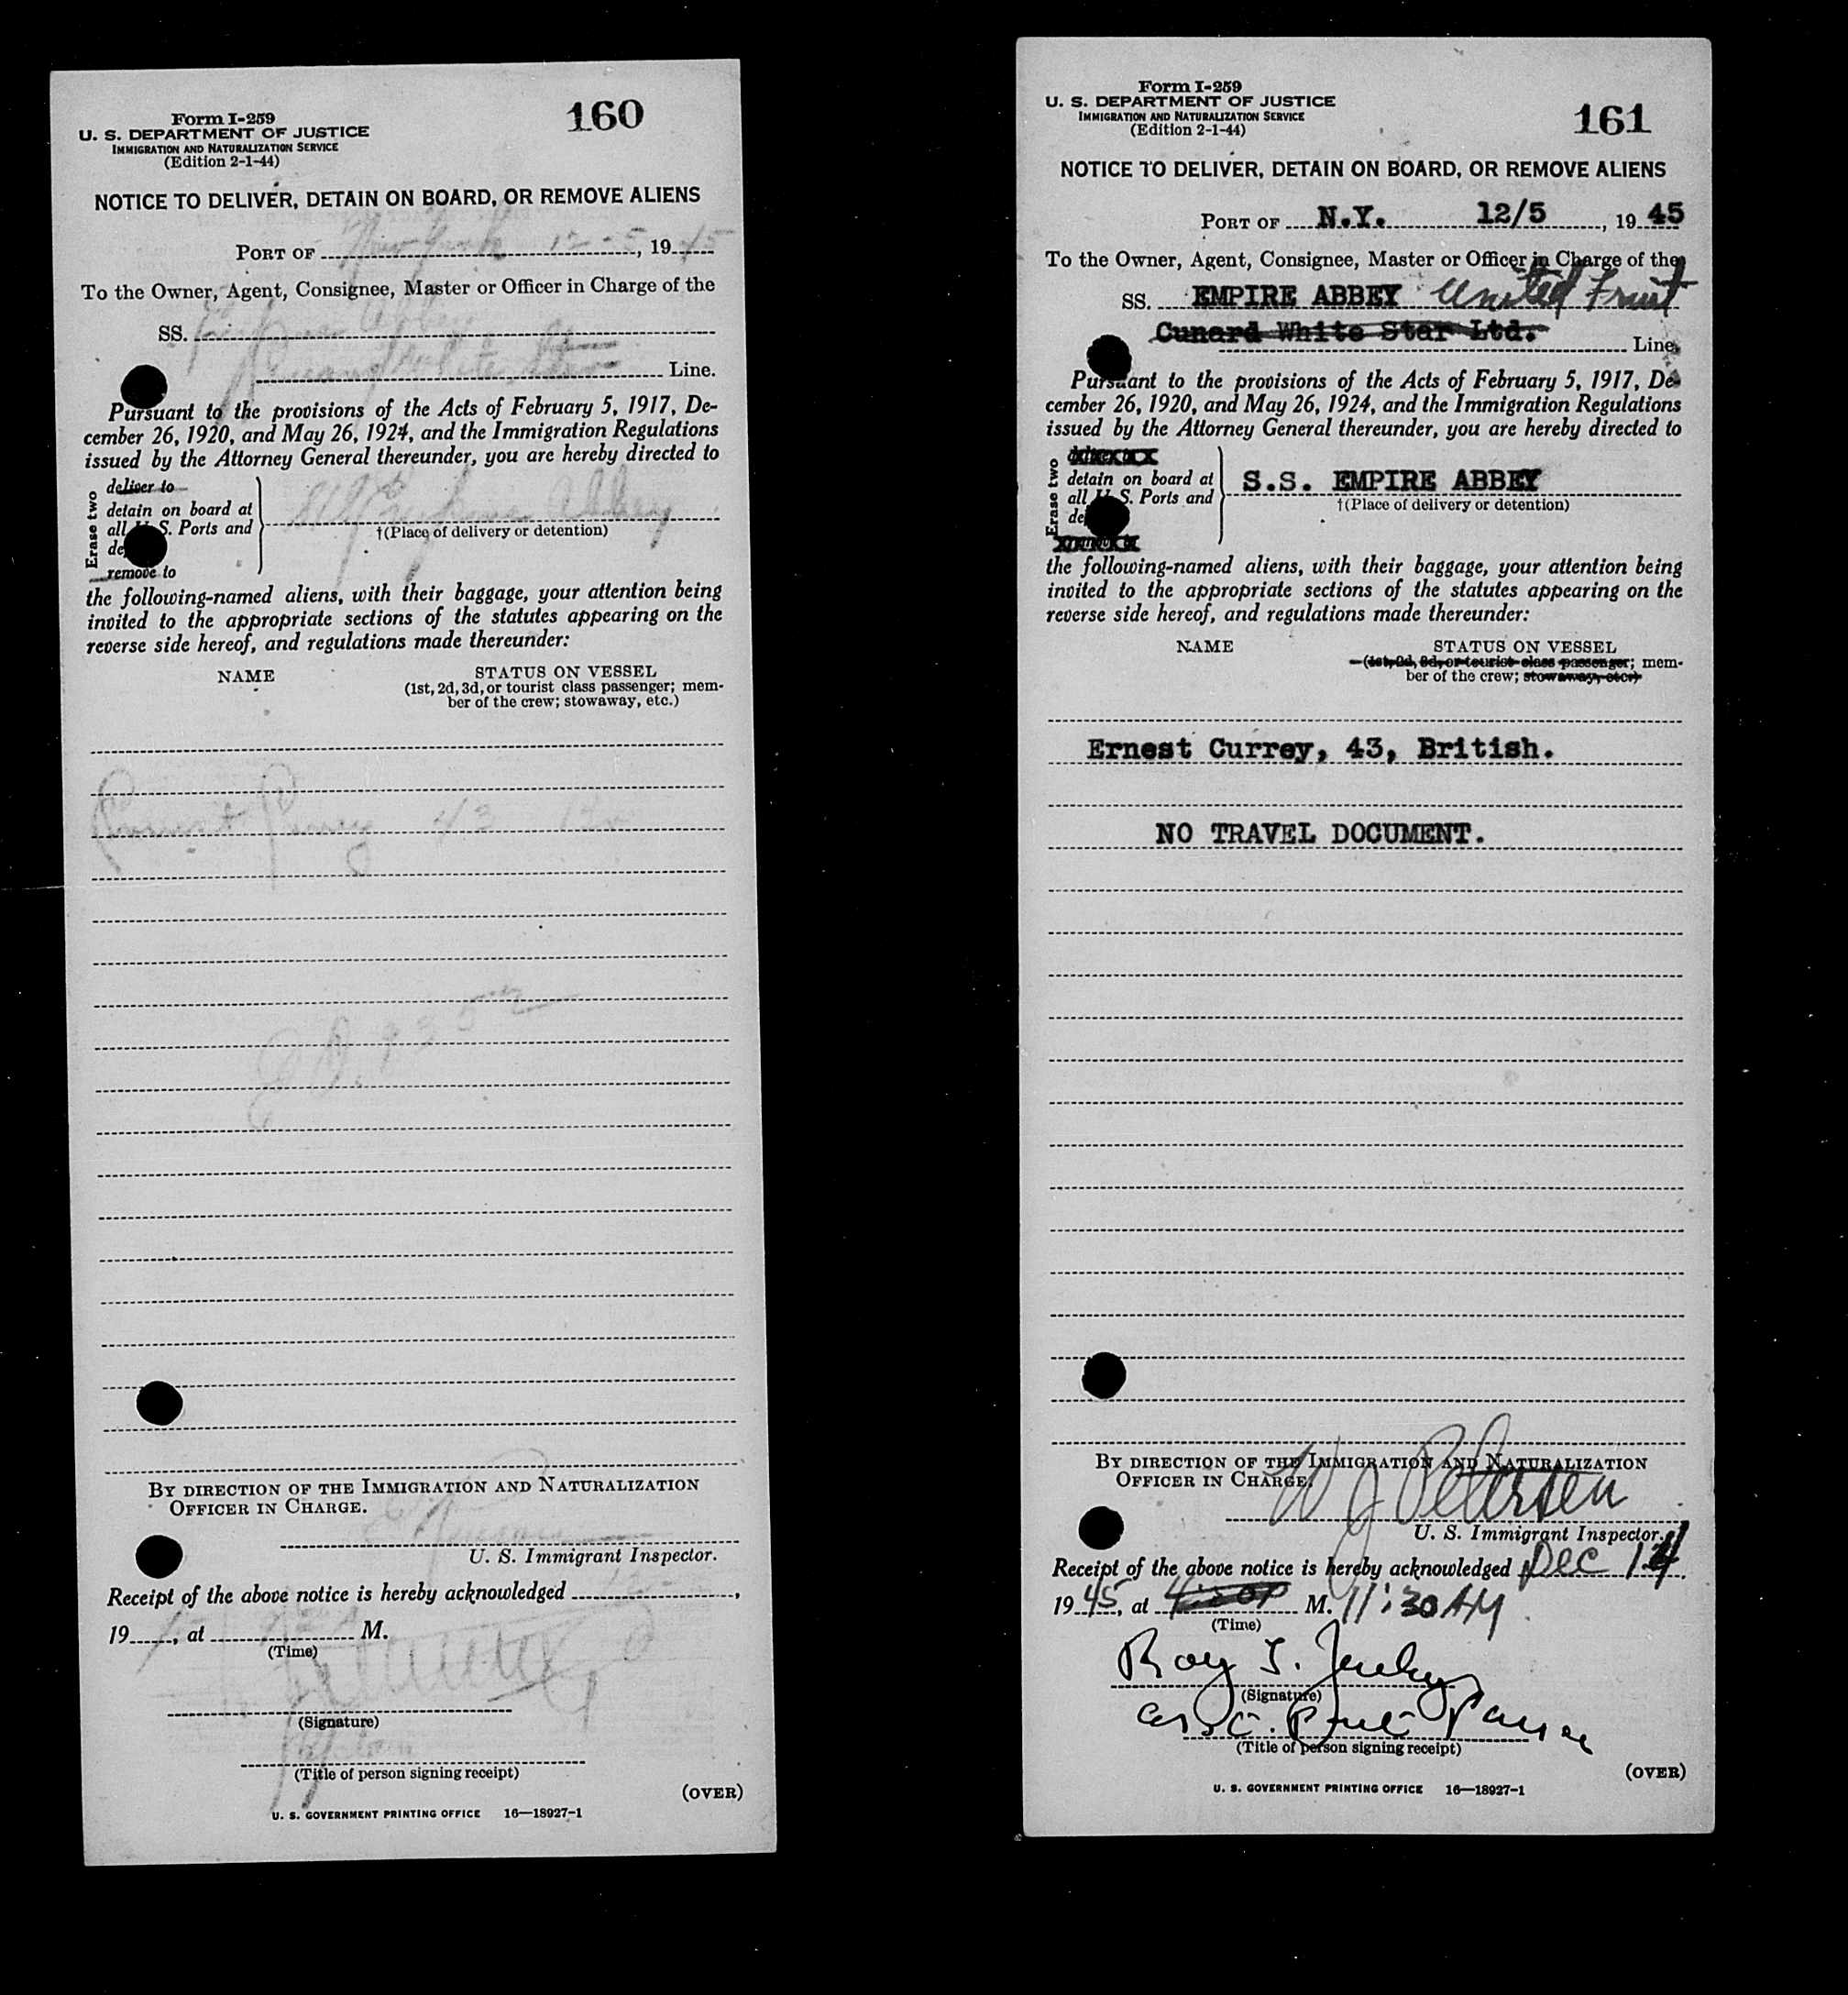 Form I-259
160
U. S. DEPARTMENT OF JUSTICE
IMMIGRATION AND NATURALIZATION SERVICE
(Edition 2-1-44)
NOTICE TO DELIVER, DETAIN ON BOARD, OR REMOVE ALIENS
PORT OF New York 12-5, 1945
To the Owner, Agent, Consignee, Master or Officer in Charge of the
SS. Empire Abbey
White Star Line.
Pursuant to the provisions of the Acts of February 5, 1917, De-
cember 26, 1920, and May 26, 1924, and the Immigration Regulations
issued by the Attorney General thereunder, you are hereby directed to
Erase two
deliver to
detain on board at
all U. S. Ports and
SS Empire Abbey
†(Place of delivery or detention)
remove to
the following-named aliens, with their baggage, your attention being
invited to the appropriate sections of the statutes appearing on the
reverse side hereof, and regulations made thereunder:
NAME
STATUS ON VESSEL
(1st, 2d, 3d, or tourist class passenger; mem-
ber of the crew; stowaway, etc.)
43
BY DIRECTION OF THE IMMIGRATION AND NATURALIZATION
OFFICER IN CHARGE.
U. S. Immigrant Inspector.
Receipt of the above notice is hereby acknowledged
19 , at M.
(Time)
(Signature)
(Title of person signing receipt)
(OVER)
U. S. GOVERNMENT PRINTING OFFICE 16—18927-1
Form I-259
161
U. S. DEPARTMENT OF JUSTICE
IMMIGRATION AND NATURALIZATION SERVICE
(Edition 2-1-44)
NOTICE TO DELIVER, DETAIN ON BOARD, OR REMOVE ALIENS
PORT OF N.Y. 12/5, 1945
To the Owner, Agent, Consignee, Master or Officer in Charge of the
SS. EMPIRE ABBEY United Fruit
Cunard White Star Ltd. Line.
Pursuant to the provisions of the Acts of February 5, 1917, De-
cember 26, 1920, and May 26, 1924, and the Immigration Regulations
issued by the Attorney General thereunder, you are hereby directed to
Erase two
detain on board at
all U. S. Ports and
S.S. EMPIRE ABBEY
†(Place of delivery or detention)
the following-named aliens, with their baggage, your attention being
invited to the appropriate sections of the statutes appearing on the
reverse side hereof, and regulations made thereunder:
NAME
STATUS ON VESSEL
(1st, 2d, 3d, or tourist class passenger; mem-
ber of the crew; stowaway, etc.)
Ernest Currey, 43, British.
NO TRAVEL DOCUMENT.
BY DIRECTION OF THE IMMIGRATION AND NATURALIZATION
OFFICER IN CHARGE.
W J Petersen
U. S. Immigrant Inspector.
Receipt of the above notice is hereby acknowledged Dec 14,
1945, at M. 11:30 AM
(Time)
Roy
(Signature)
(Title of person signing receipt)
(OVER)
U. S. GOVERNMENT PRINTING OFFICE 16—18927-1